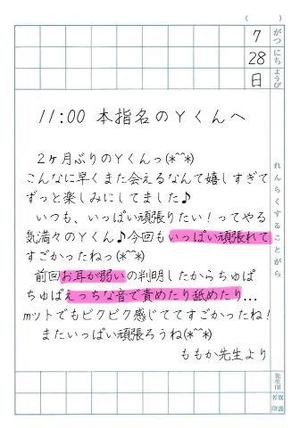 (　)
7 がつ
28 にち
日 ようび
れんらくすることがら
11:00 本指名のYくんへ
2ヶ月ぶりのYくんっ(*^^*)
こんなに早くまた会えるなんて嬉しすぎて
ずっと楽しみにしてました♪
いつも、いっぱい頑張りたい!ってやる
気満々のYくん♪今回もいっぱい頑張れて
すごかったねっ(*^^*)
前回お耳が弱いの判明したからちゅぱ
ちゅぱえっちな音で責めたり舐めたり…
mットでもビクビク感じててすごかったね!
またいっぱい頑張ろうね(*^^*)
ももか先生より
先生印